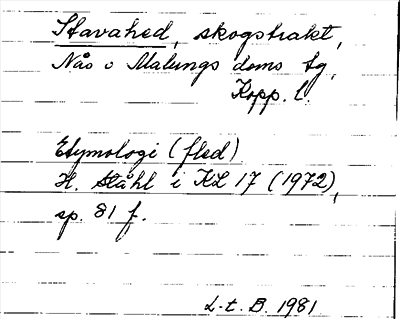 Stavahed, skogstrakt,
Nås o Malungs doms tg,
Kopp. l.
Etymologi (fled)
H. Ståhl i KL 17 (1972),
sp. 81 f.
L-t. B. 1981